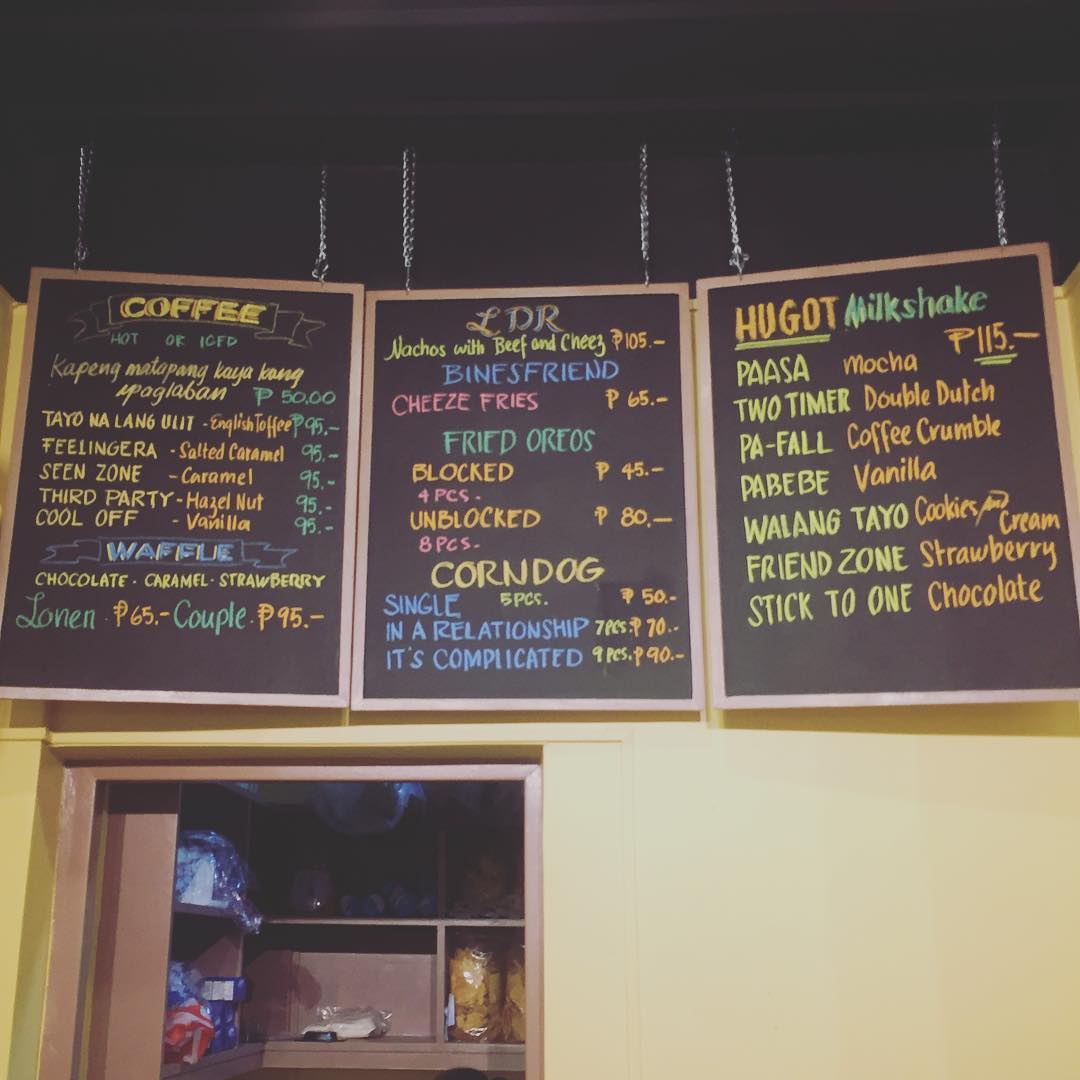 COFFEE
HOT OR ICED
Kapeng matapang kaya kang
ipaglaban ₱ 50.00
TAYO NA LANG ULIT - English Toffee ₱95.-
FEELINGERA - Salted Caramel 95.-
SEEN ZONE - Caramel 95.-
THIRD PARTY - Hazel Nut 95.-
COOL OFF - Vanilla 95.-
WAFFLE
CHOCOLATE · CARAMEL · STRAWBERRY
Loner · ₱65.- Couple · ₱95.-
LDR
Nachos with Beef and Cheez ₱105.-
BINESFRIEND
CHEEZE FRIES ₱ 65.-
FRIED OREOS
BLOCKED ₱ 45.-
4 PCS.
UNBLOCKED ₱ 80.-
8 PCS.
CORNDOG
SINGLE 5 PCS. ₱ 50.-
IN A RELATIONSHIP 7 pcs. ₱ 70.-
IT'S COMPLICATED 9 pcs. ₱ 90.-
HUGOT Milkshake
₱115.-
PAASA Mocha
TWO TIMER Double Dutch
PA-FALL Coffee Crumble
PABEBE Vanilla
WALANG TAYO Cookies and Cream
FRIEND ZONE Strawberry
STICK TO ONE Chocolate